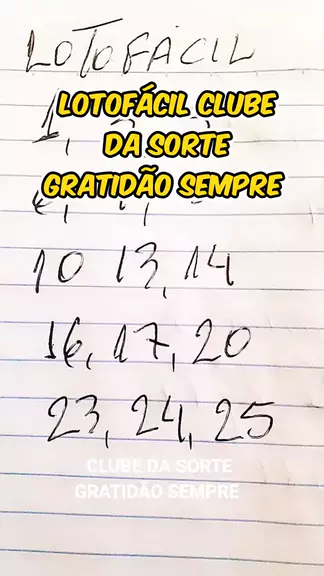 LOTOFÁCIL
LOTOFÁCIL CLUBE
DA SORTE
GRATIDÃO SEMPRE
10 13, 14
16, 17, 20
23, 24, 25
CLUBE DA SORTE
GRATIDÃO SEMPRE